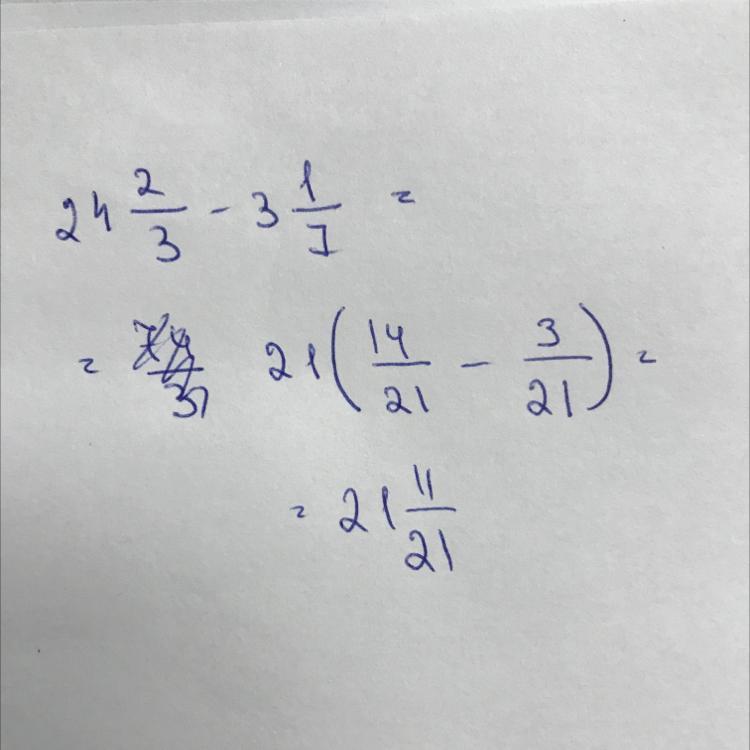 24 2/3 - 3 1/7 =
= 21(14/21 - 3/21) =
= 21 11/21